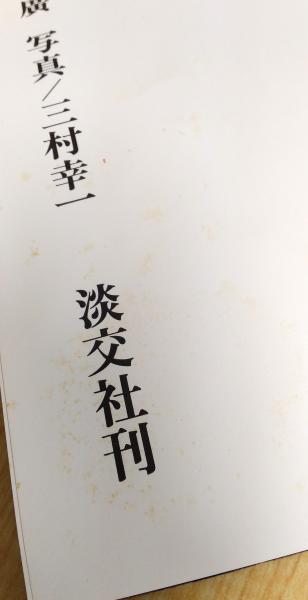 廣 写真/三村幸一
淡交社刊